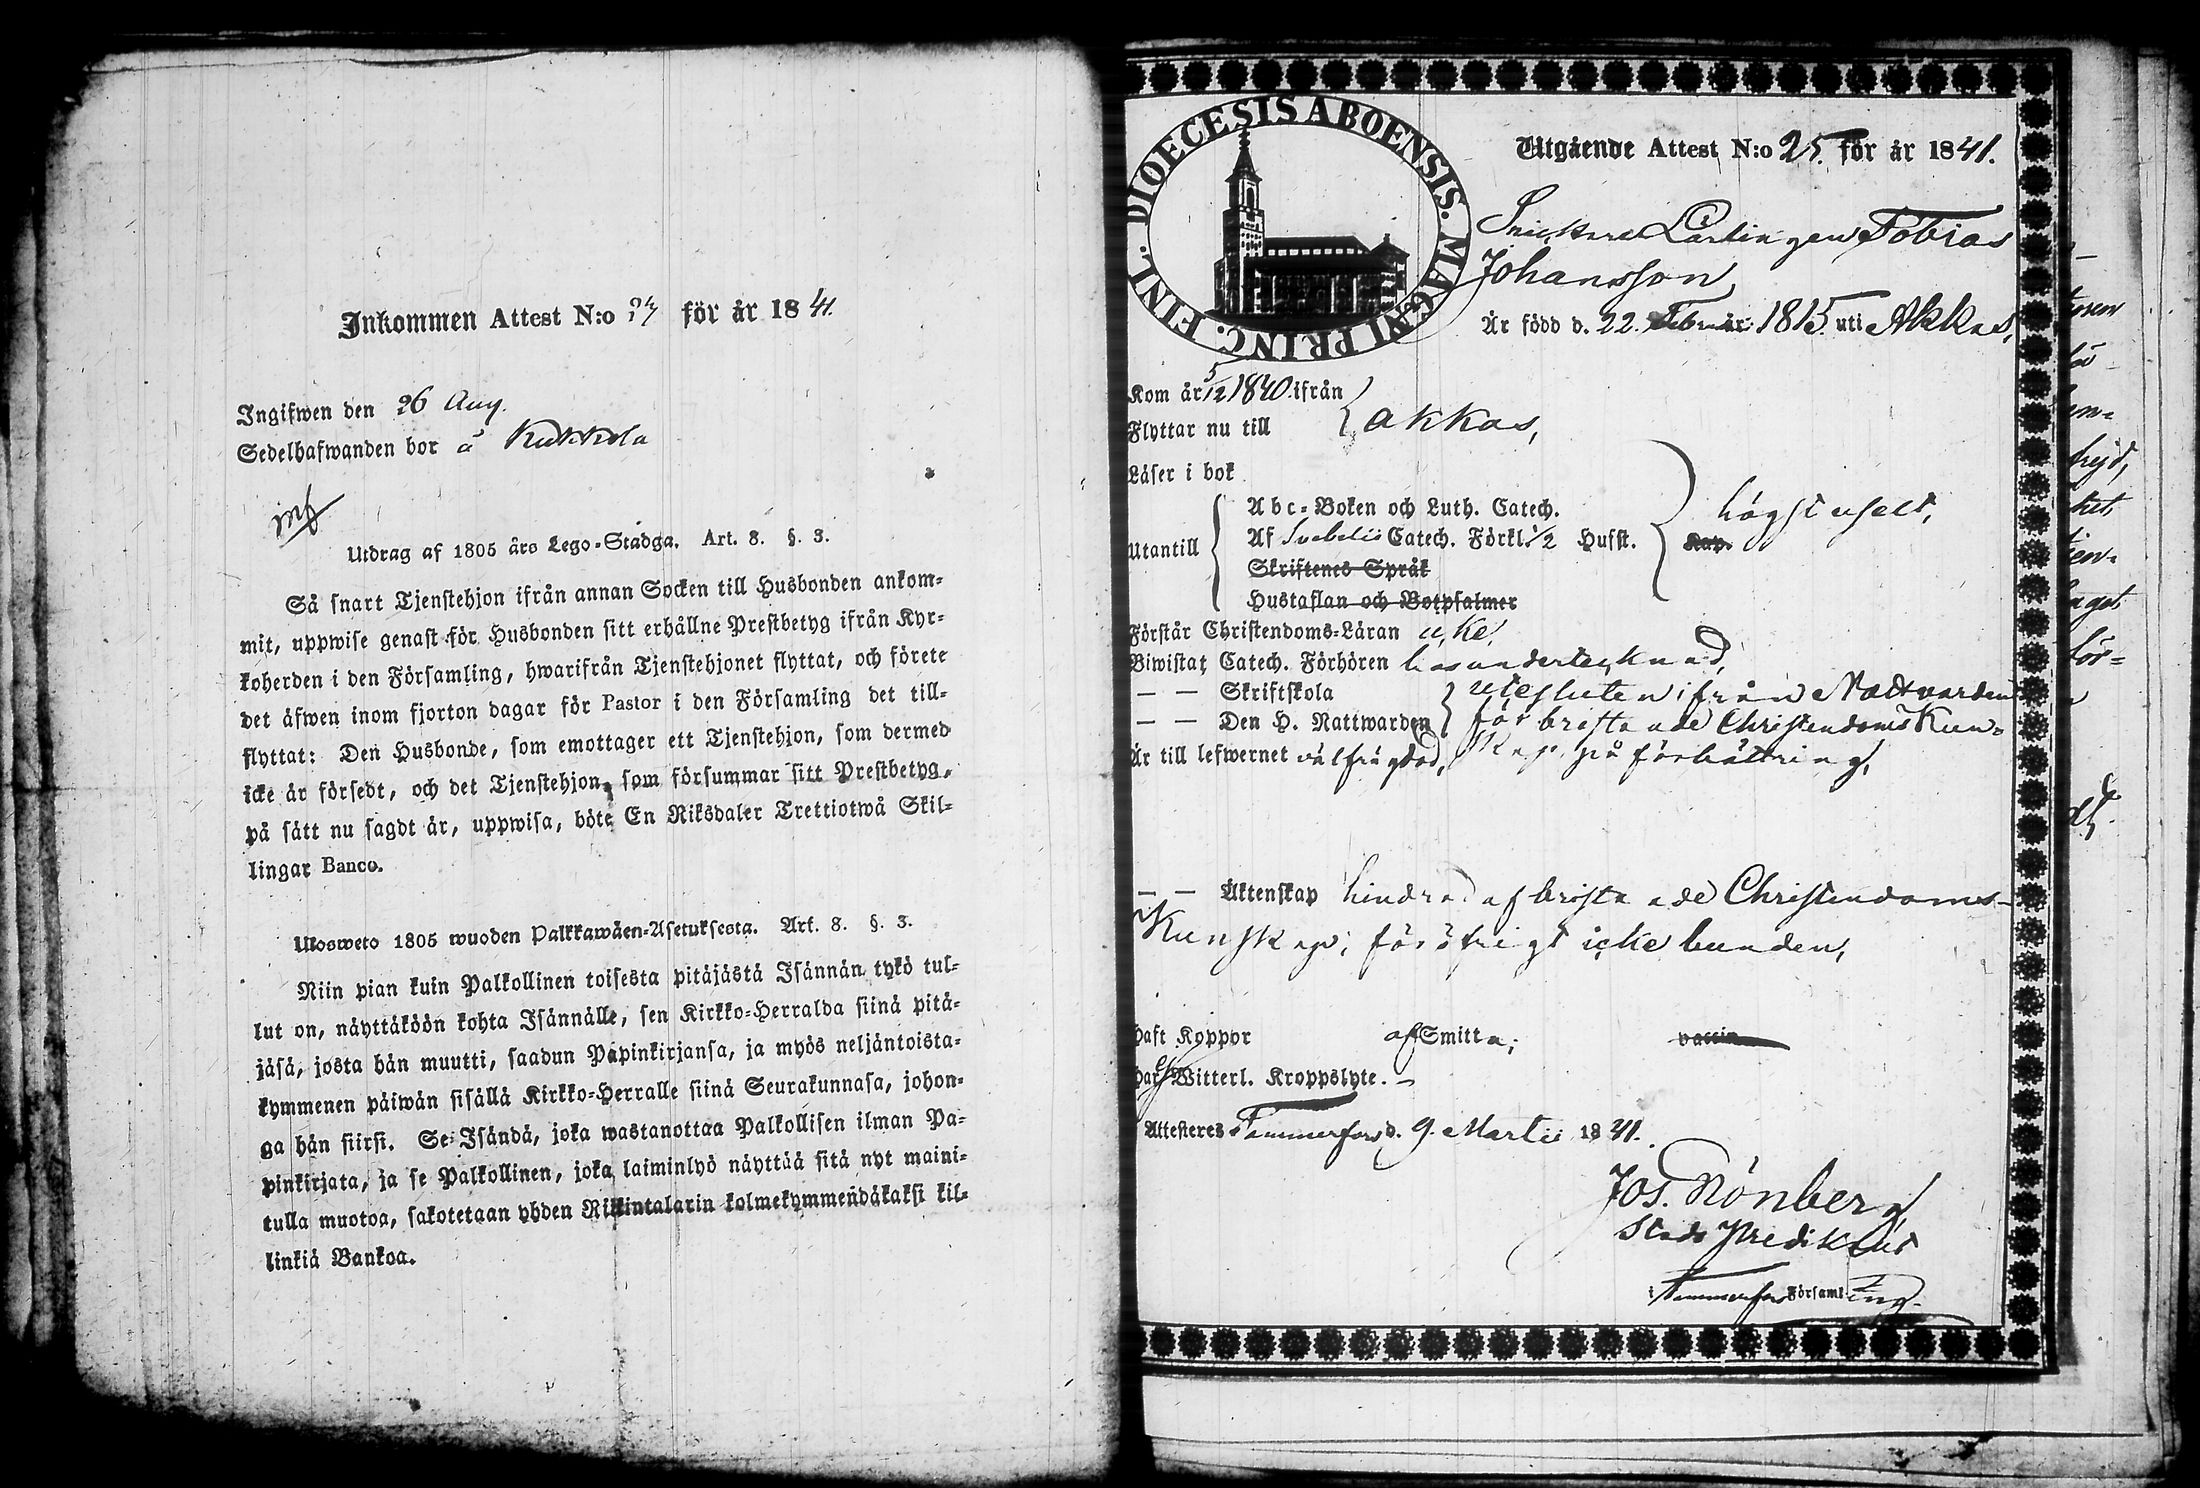 Inkommen Attest N:o för år 1841.
Ingifwen den 26 Aug.
Sedelhafwanden bor å Kukkola
inf
Utdrag af 1805 års Lego-Stadga. Art. 8. §. 3.
Så snart Tjenstehjon ifrån annan Socken till Husbonden ankom-
mit, uppwise genast för Husbonden sitt erhållne Prestbetyg ifrån Kyr-
koherden i den Församling, hwarifrån Tjenstehjonet flyttat, och förete
det äfwen inom fjorton dagar för Pastor i den Församling det till-
flyttat: Den Husbonde, som emottager ett Tjenstehjon, som dermed
icke är försedt, och det Tjenstehjon, som försummar sitt Prestbetyg,
på sätt nu sagdt är, uppwisa, böte En Riksdaler Trettiotwå Skil-
lingar Banco.
Ulosweto 1805 wuoden Palkkawäen-Asetuksesta. Art. 8. §. 3.
Niin pian kuin Palkollinen toisesta pitäjästä Isännän tykö tul-
lut on, näyttäköön kohta Isännälle, sen Kirkko-Herralda siinä pitä-
jäsä, josta hän muutti, saadun Papinkirjansa, ja myös neljäntoista-
kymmenen päiwän sisällä Kirkko-Herralle siinä Seurakunnasa, johon-
ga hän siirsi. Se Isändä, joka wastanottaa Palkollisen ilman Pa-
pinkirjata, ja se Palkollinen, joka laiminlyö näyttää sitä nyt maini-
tulla muotoa, sakotetaan yhden Riikintalarin kolmekymmendäkaksi kil-
linkiä Bankoa.
DIOECESIS ABOENSIS. MAGNI PRINC. FINL.
Utgående Attest N:o 25. för år 1841.
Snickare Lärlingen Tobias
Johansson
Är född d. 22. Februarii 1815 uti Akkas,
Kom år 5/12 1840. ifrån
Flyttar nu till Akkas,
Läser i bok
Utantill
Abc-Boken och Luth. Catech.
Af Svebelii Catech. Förkl. 1/2 Husst.
Skriftenes Språk
Hustaflan och Botpsalmer
högst uselt,
Kap.
Förstår Christendoms-Läran icke,
Biwistat Catech. Förhören hos undertecknad,
— — Skriftskola
— — Den H. Nattwarden
utesluten ifrån Nattvarden
för bristande Christendoms Kun-
skap på förbättring,
Är till lefwernet välfrägdad,
— — Äktenskap hindrad af bristande Christendoms-
Kunskap; för öfrigt icke bunden,
Haft Koppor af Smitta; vaccin
Har ej Witterl. Kroppslyte. —
Attesteres Tammerfors d. 9. Martii 1841.
Jos. Rönberg
Stads Predikant
i Tammerfors Församling.